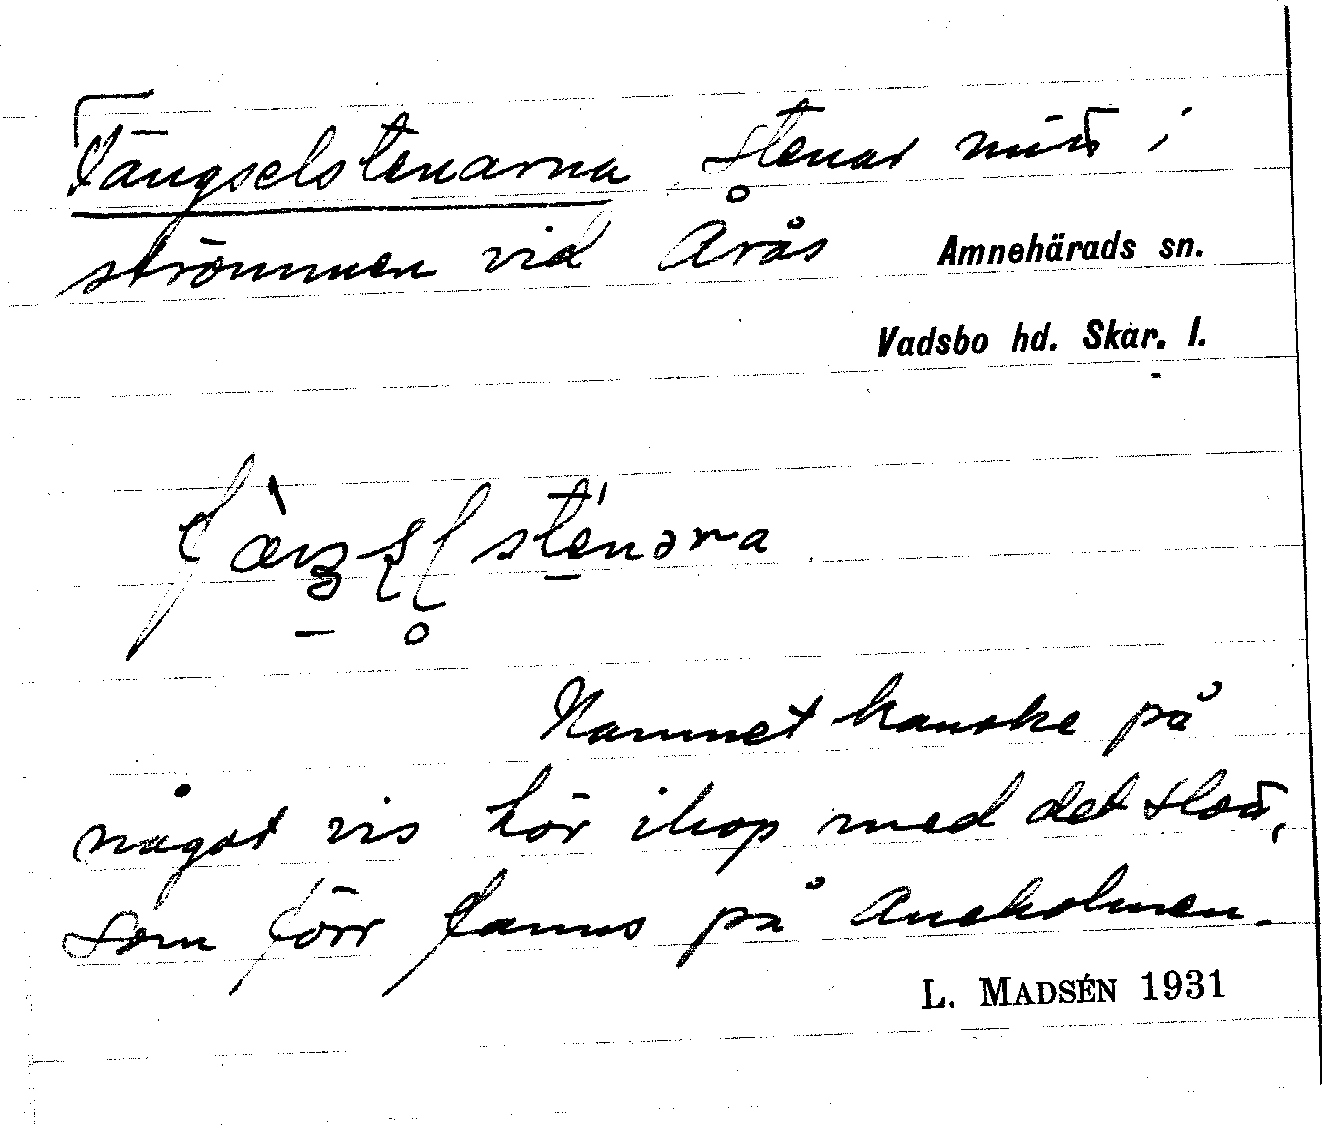 Fängselstenarna Stenar mitt i
strömmen vid Årås Amnehärads sn.
Vadsbo hd. Skar. l.
Namnet kanske på
något vis hör ihop med det slott,
som förr fanns på Aneholmen.
L. MADSÉN 1931